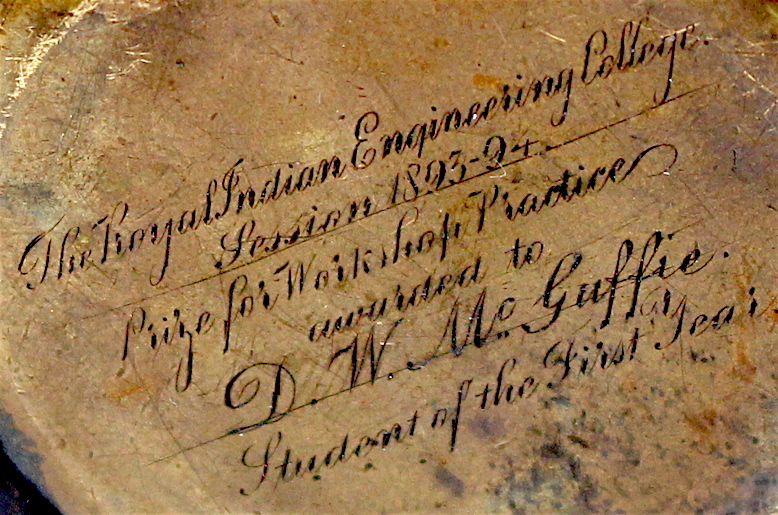 The Royal Indian Engineering College.
Session 1893-94.
Prize for Workshop Practice
awarded to
D. W. Mc Guffie.
Student of the First Year